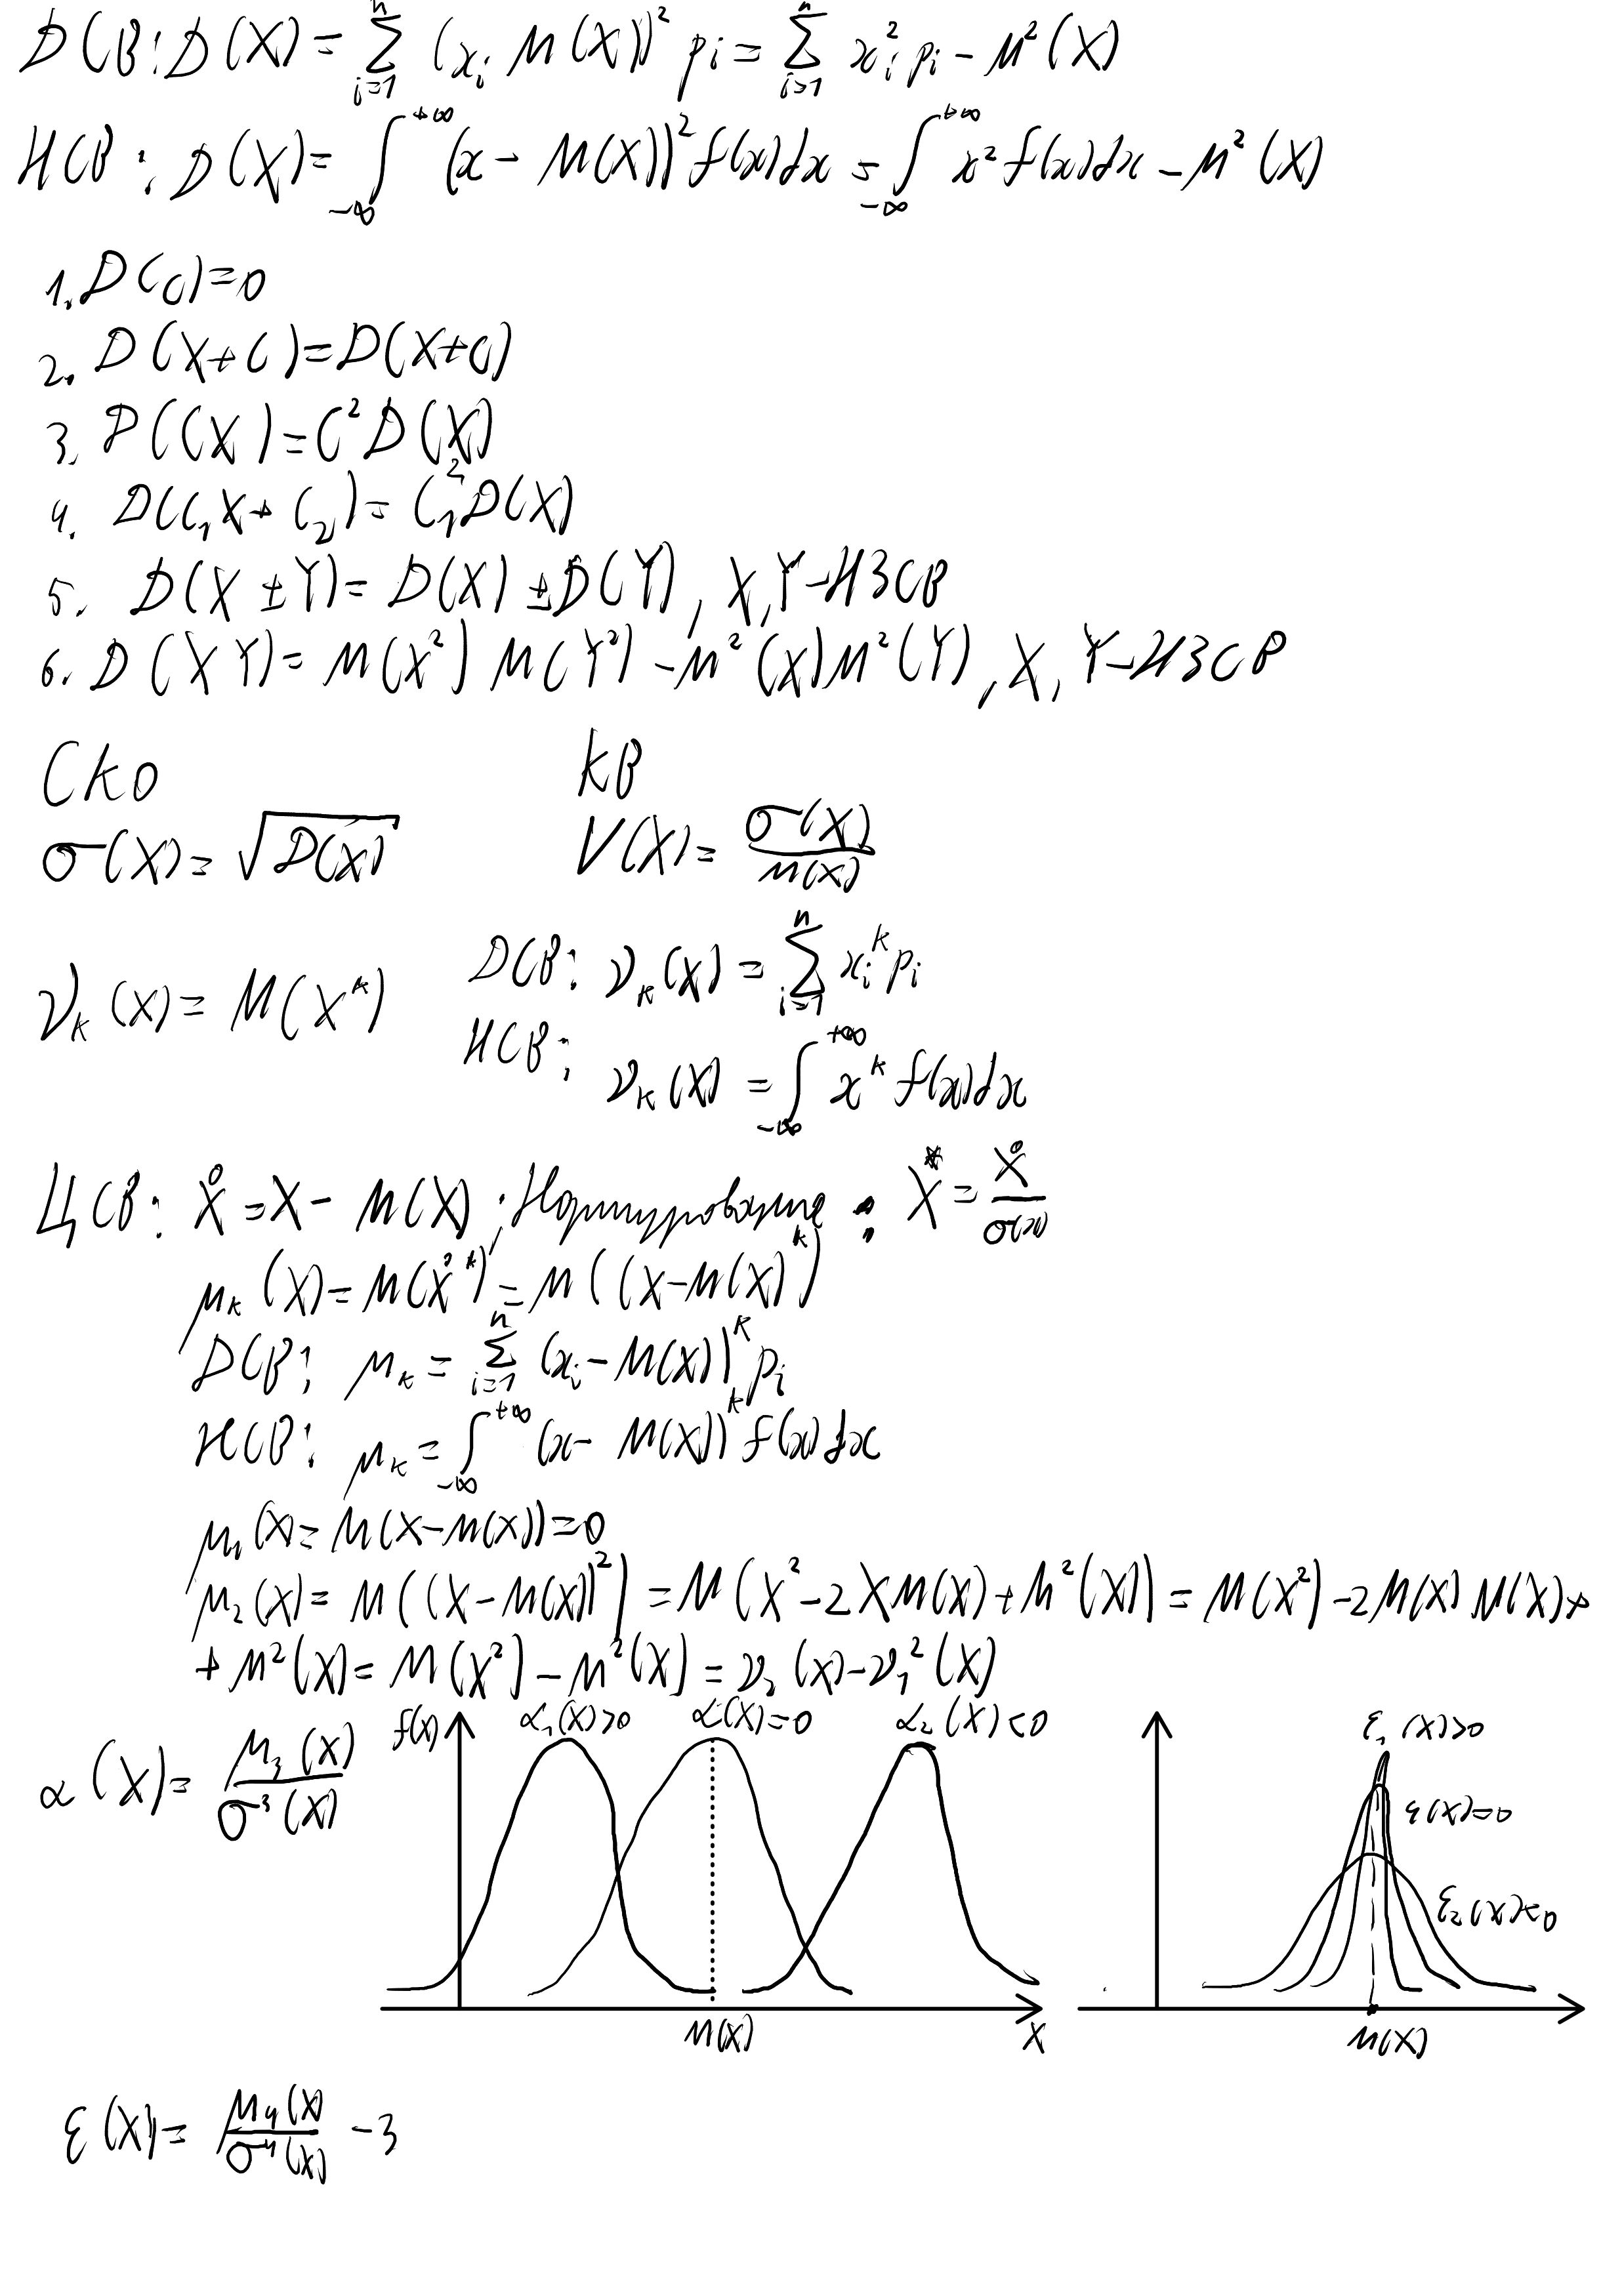 ДСВ: D(X) = ∑_{i=1}^{n} (x_i M(X))² p_i = ∑_{i=1}^{n} x_i² p_i − M²(X)
НСВ: D(X) = ∫_{−∞}^{+∞} (x − M(X))² f(x)dx = ∫_{−∞}^{+∞} x² f(x)dx − M²(X)
1. D(C) = 0
2. D(X + C) = D(X + C)
3. D(CX) = C² D(X)
4. D(C₁X + C₂) = C₁² D(X)
5. D(X ± Y) = D(X) ± D(Y), X, Y − НЗСВ
6. D(XY) = M(X²) M(Y²) − M²(X)M²(Y), X, Y − НЗСВ
СКО КВ
σ(X) = √D(X) V(X) = σ(X)/M(X)
ν_k(X) = M(X^k) ДСВ: ν_k(X) = ∑_{i=1}^{n} x_i^k p_i
НСВ: ν_k(X) = ∫_{−∞}^{+∞} x^k f(x)dx
ЦСВ: X̊ = X − M(X); Нормированная: X* = X̊/σ(X)
μ_k(X) = M(X̊^k) = M((X − M(X))^k)
ДСВ: μ_k = ∑_{i=1}^{n} (x_i − M(X))^k p_i
НСВ: μ_k = ∫_{−∞}^{+∞} (x − M(X))^k f(x)dx
μ₁(X) = M(X − M(X)) = 0
μ₂(X) = M((X − M(X))²) = M(X² − 2XM(X) + M²(X)) = M(X²) − 2M(X)M(X) +
+ M²(X) = M(X²) − M²(X) = ν₂(X) − ν₁²(X)
α(X) = μ₃(X)/σ³(X)
f(x) α₁(X)>0 α(X)=0 α₂(X)<0
M(X) X
ε₁(X)>0
ε(X)=0
ε₂(X)<0
M(X)
ε(X) = μ₄(X)/σ⁴(X) − 3